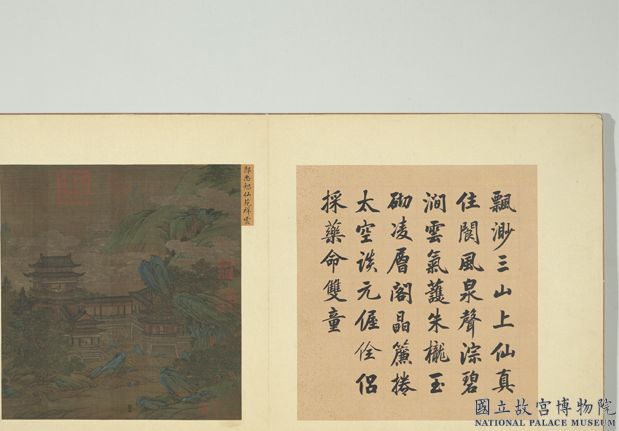 飄渺三山上仙真
住閬風泉聲淙碧
澗雲氣護朱櫳玉
砌凌層閣晶簾捲
太空談元偓佺侶
採藥命雙童
郭忠恕仙苑祥雲
國立故宮博物院
NATIONAL PALACE MUSEUM